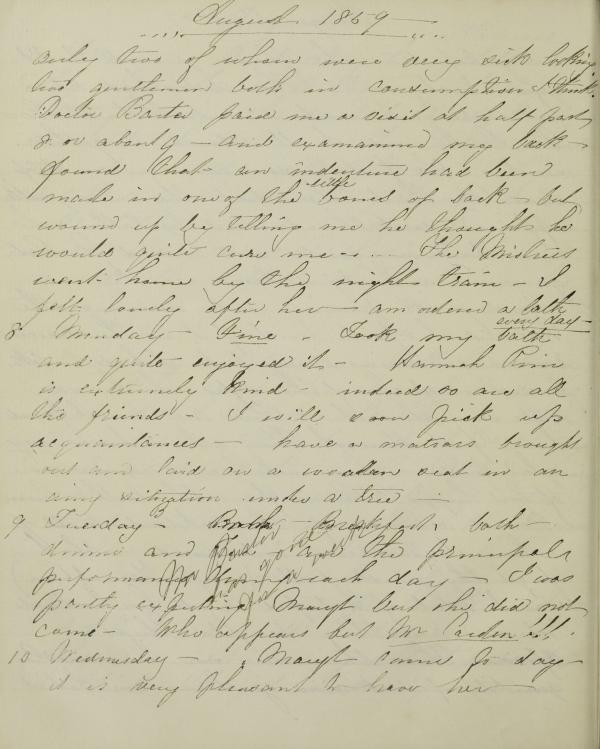 August 1869
only two of whom were very sick looking
two gentlemen both in consumption I think.
Doctor Barter paid me a visit at half past
8 or about 9 – and examained my back –
found that an indenture had been
made in one of the little bones of back – but
wound up by telling me he thought he
would quite cure me – . . . The Mistress
went home by the night train – I
felt lonely after her – am ordered a bath
every day –
8 Monday – Fine – Took my bath
and quite enjoyed it – Hannah Rim
is extremely kind – indeed so are all
the friends – I will soon pick up
acquaintances – have a matrass brought
out and laid on a wooden seat in an
airy situation under a tree –
9 Tuesday – Bath – Breakfast, bath –
dinner and Tea are the principal
performances here each day – I was
partly expecting Margt but she did not
come – Who appears but Mr Carden !!!.
The Doctor
is gone
for a week
10 Wednesday – Margt came to day –
it is very pleasant to have her –